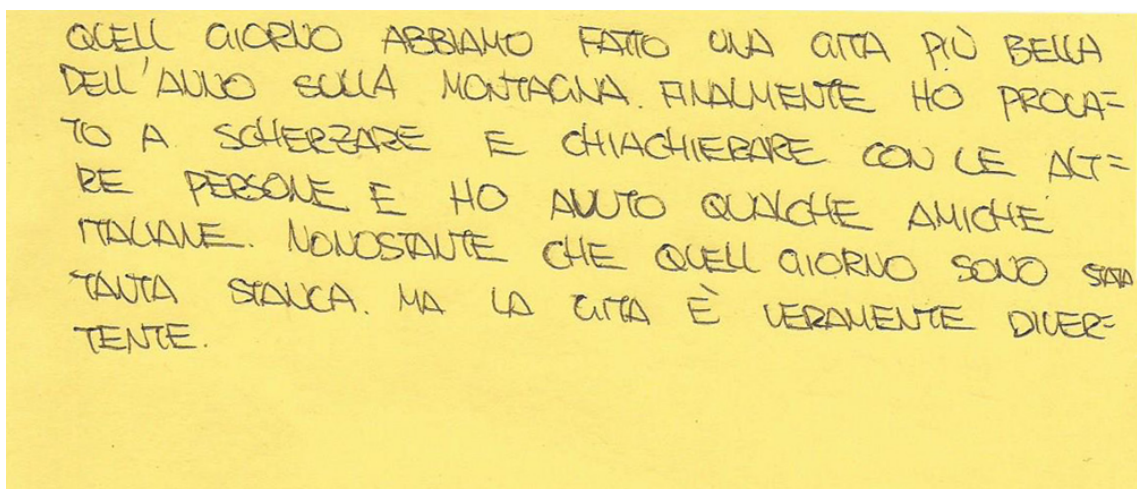 QUELL GIORNO ABBIAMO FATTO UNA GITA PIÙ BELLA
DELL'ANNO SULLA MONTAGNA. FINALMENTE HO PROVA=
TO A SCHERZARE E CHIACHIERARE CON LE ALT=
RE PERSONE E HO AVUTO QUALCHE AMICHE
ITALIANE. NONOSTANTE CHE QUELL GIORNO SONO STATA
TANTA STANCA. MA LA GITA È VERAMENTE DIVER=
TENTE.